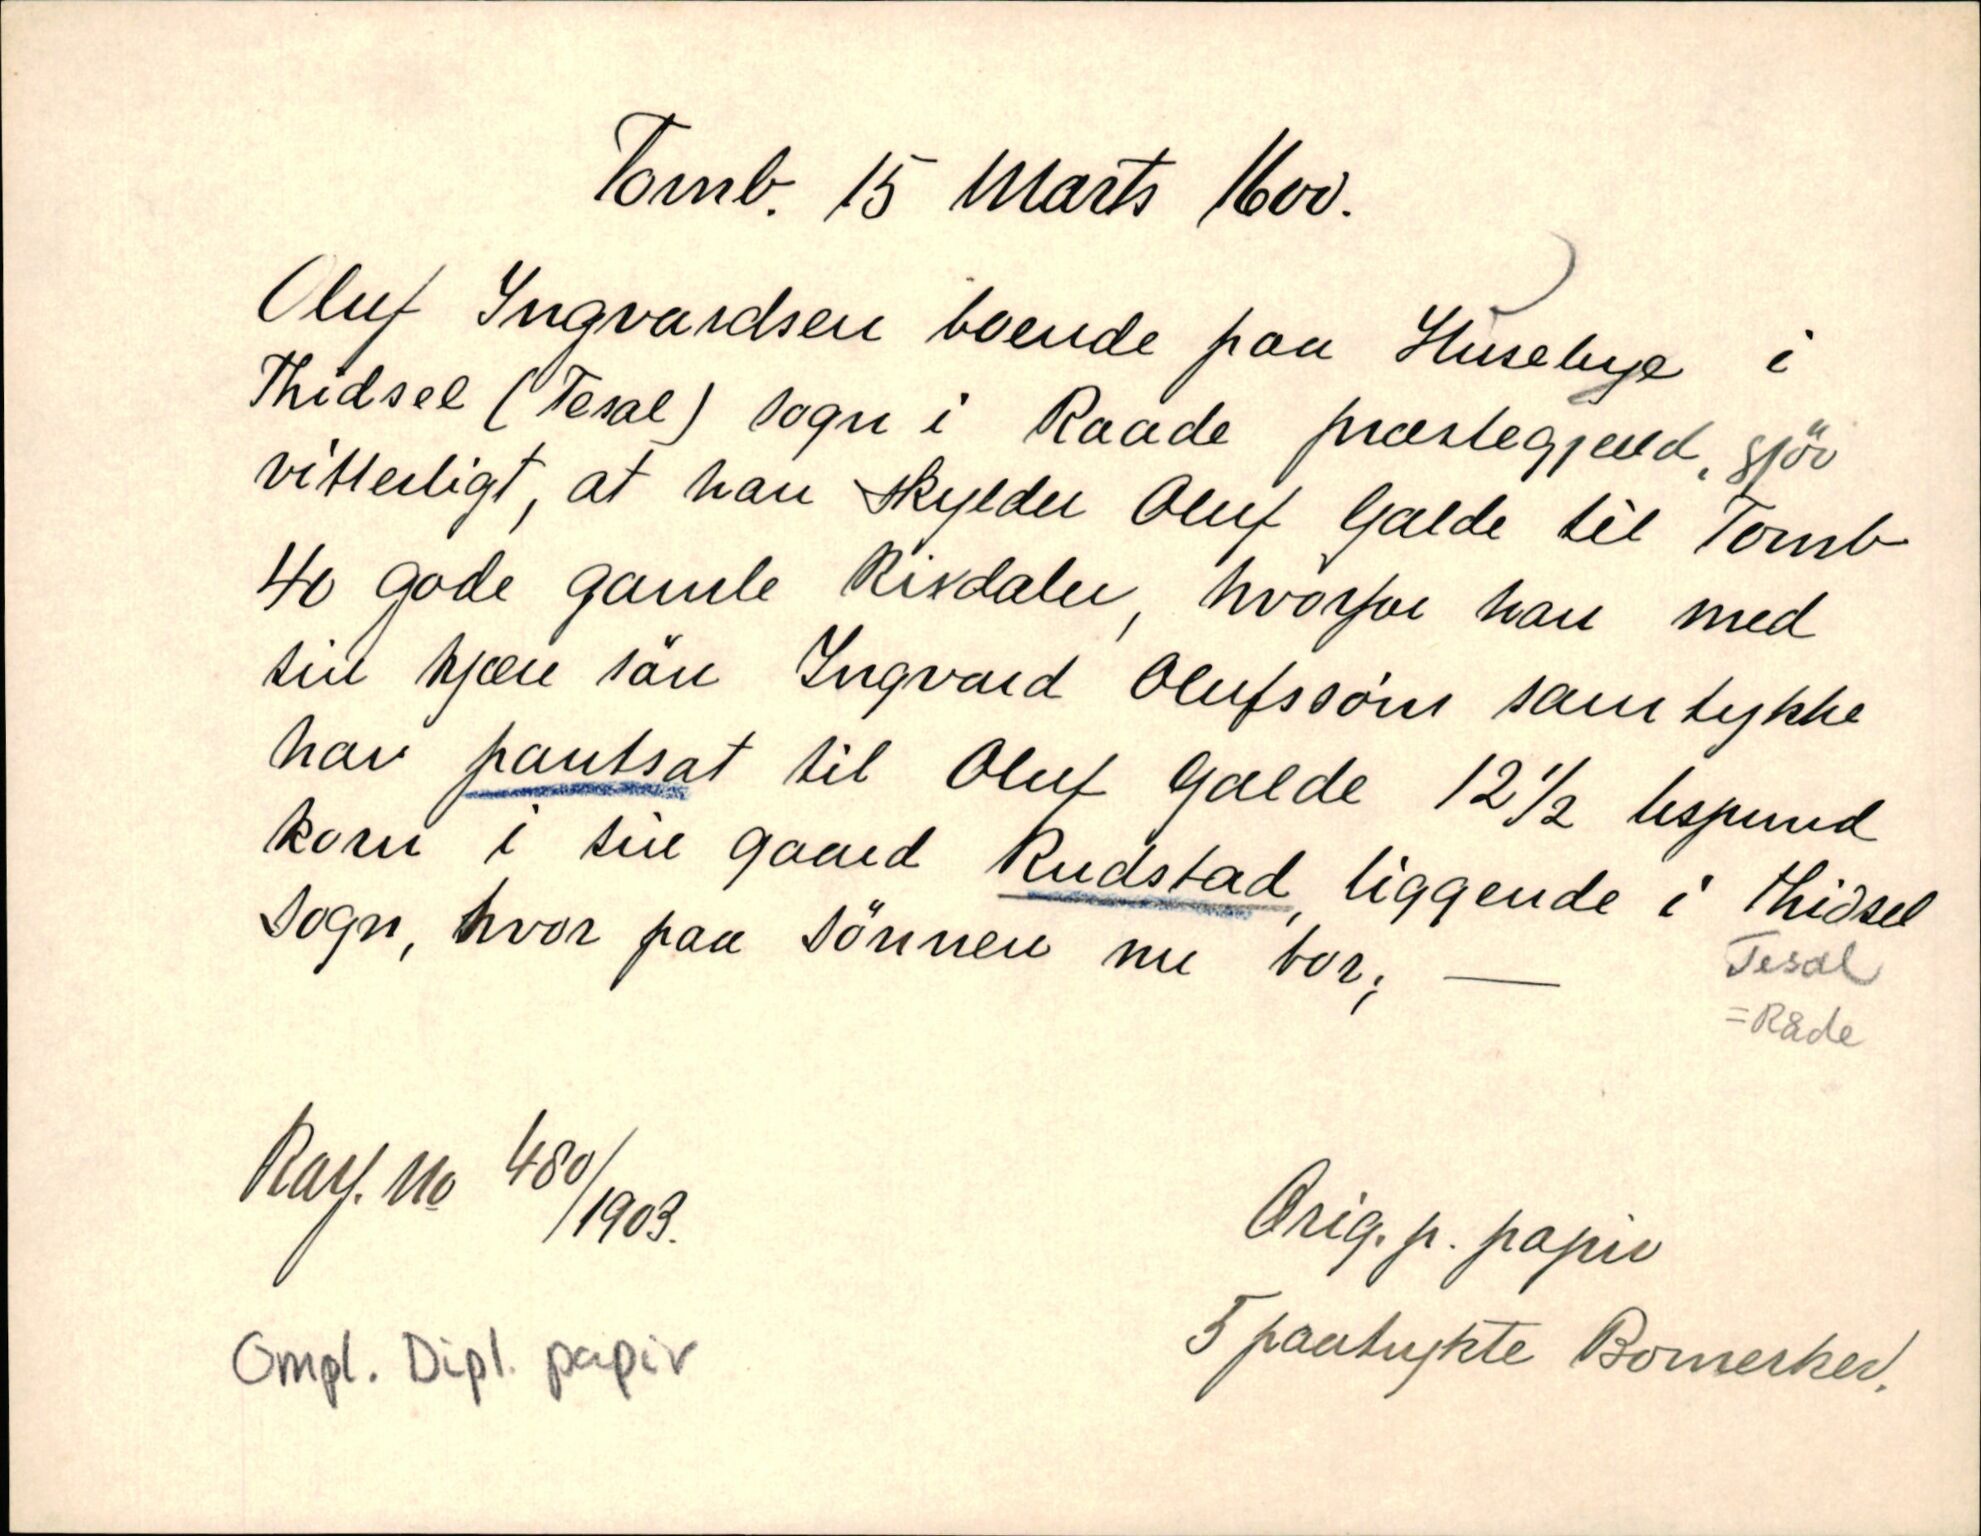 Tomb. 15 Marts 1600.
Oluf Ingvardsen boende paa Husebye i
Thidsel (Tesal) sogn i Raade præstegjæld, gjör
vitterligt, at han skylder Oluf Galde til Tomb
40 gode gamle Rixdaler, hvorfor han med
sin kjære sön Ingvard Olufssöns samtykke
har pantsat til Oluf Galde 12 1/2 lispund
korn i sin gaard Rudstad, liggende i Thidsel
sogn, hvor paa sönnen nu bor; —
Tesal
= Råde
No 480/1903.
Orig. p. papir
5 paatrykte Bomerker.
Ompl. Dipl. papir